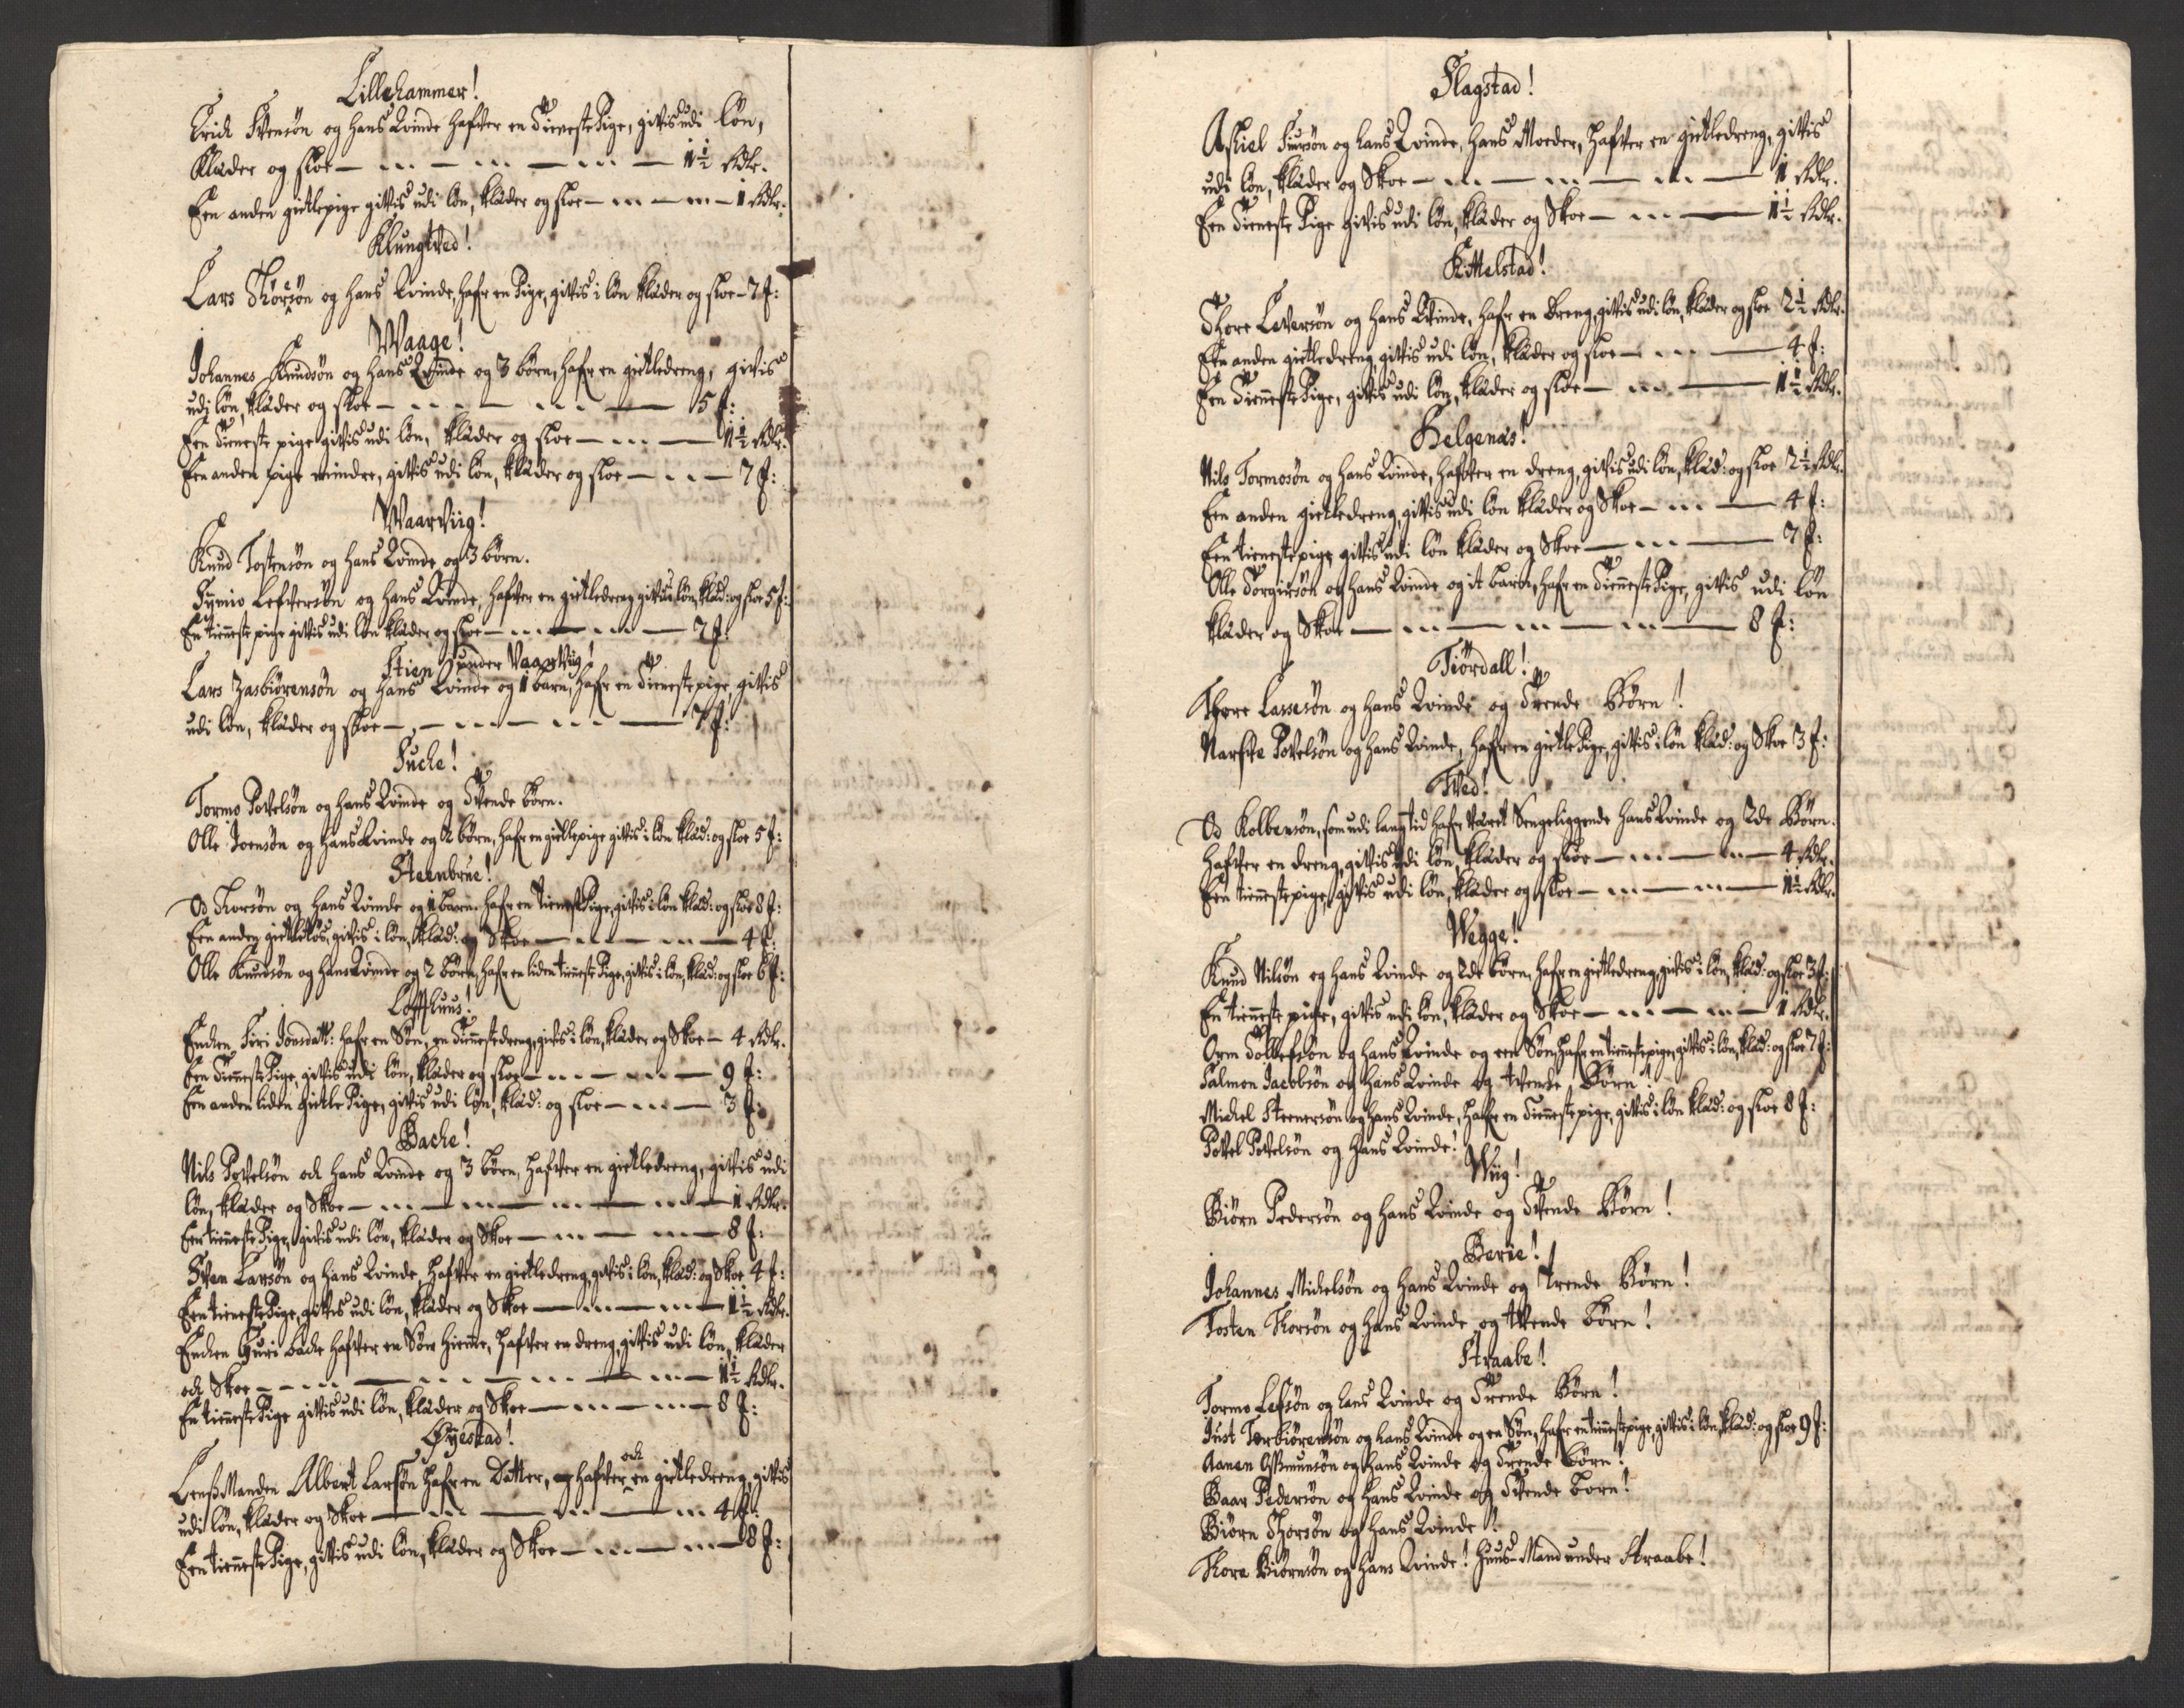 Lillehammer!
Erich Svensön og hans Qvinde hafver en TienestePige, givis udi lön,
Klæder og skoe — 1½ Rdlr.
Een anden gietlepige givis udi lön, klæder og skoe — 1 Rdlr.
Klungtved!
Lars Thorsön og hans Qvinde, hafr en Pige, givis i lön klæder og skoe — 7 ʄ:
Waage!
Johannes Knudsön og hans Qvinde og 3 börn, hafr en gietledreng, givis
udj lön, klæder og skoe — 5 ʄ:
Een Tieneste pige givis udi lön, klæder og skoe — 1½ Rdlr.
Een anden pige mindre, givis udi lön, klæder og skoe — 7 ʄ:
Waarviig!
Knud Tostensön og hans Qvinde og 3 börn.
Lefversön og hans Qvinde, hafver en gietledreng givis i lön, klæd: og skoe 5 ʄ:
En tienneste pige givis udi lön klæder og skoe — 7 ʄ:
Stien under Vaarviig!
Lars Zasbiörensön og hans Qvinde og 1 barn, hafr en Tienestepige, givis
udi lön, klæder og skoe — 7 ʄ:
Fuche!
Tormo Povelsön og hans Qvinde og Tvende börn.
Olle Joensön og hans Qvinde og 2 börn, hafr en gietlepige givis i lön klæd: og skoe 5 ʄ:
Steenbrue!
Od Thorsön og hans Qvinde og 1 barn hafr en tienestePige, givis i lön klæd: og skoe 8 ʄ:
Een anden givis i lön, klæd: og Skoe — 4 ʄ:
Olle Knudsön og hans Qvinde og 2 börn, hafr en liden tienestePige, givis i lön, klæd: og skoe 6 ʄ:
Loffthuus!
Enchen Siri Jonsdatt: hafr en Sön, en Tiennestedreng, givis i lön, klæder og Skoe — 4 Rdlr.
Een TiennestePige, givis udi lön, klæder og skoe — 9 ʄ:
Een anden liden gietle Pige, givis udi lön, klæd: og skoe — 3 ʄ:
Bache!
Nils Povelsön och hans Qvinde og 3 börn, hafver en gietledreng, givis udi
lön, klæder og Skoe — 1 Rdlr.
Een tienneste Pige, givis udi lön, klæder og Skoe — 8 ʄ:
Sven Larsön og hans Qvinde, hafver en gietledreng, givis i lön, klæd: og Skoe 4 ʄ:
Een tieneste Pige, givis udi lön, klæder og Skoe — 1½ Rdlr.
Enchen Guri bache hafver en Sön hiemme, hafver en dreng, givis udi lön, klæder
och Skoe — 1½ Rdlr.
En tienneste Pige givis udi lön, klæder og Skoe — 8 ʄ:
Øyestad!
LensManden Albert Larsön hafr en Datter, och hafver en gietledreng, givis
udi lön, klæder og Skoe — 4 ʄ:
Een tienneste Pige, givis udi lön, klæder og Skoe — 8 ʄ:
Flagstad!
Askiel Siursön og hans Qvinde, hans Moeder, hafver en gietledreng, givis
udi lön, klæder og Skoe — 1 Rdlr.
Een Tieneste Pige givis udi lön, klæder og Skoe — 1½ Rdlr.
Kittelstad!
Thore Leversön og hans Qvinde, hafr en dreng, givis udi lön, klæder og skoe 2½ Rdlr.
Een anden gietledreng givis udi lön, klæder og skoe — 4 ʄ:
Een TiennestePige, givis udi lön, klæder og skoe — 1½ Rdlr.
Helgenæs!
Nils Tormosön og hans Qvinde, hafver en dreng, givis udi lön, klæd: og skoe 2½ Rdlr.
Een anden gietledreng, givis udi lön klæder og Skoe — 4 ʄ:
Een tienestepige givis udi lön klæder og Skoe — 7 ʄ:
Olle Torgiersön og hans Qvinde og it barn, hafr en TiennestePige, givis udi lön
klæder og Skoe — 8 ʄ:
Tiördall!
Thore Lassesön og hans Qvinde og Trende Börn!
Narffe Povelsön og hans Qvinde, hafr en gietle Pige, givis i lön klæd: og Skoe 3 ʄ:
Tved!
Od Kolbensön, som udi lang tid hafr været Sengeliggende hans Qvinde og 2de Börn.
hafver en dreng, givis udi lön, klæder og skoe — 4 Rdlr.
Een tiennestepige, givis udi lön, klæder og skoe — 1½ Rdlr.
Wegge!
Knud Nilsön og hans Qvinde og 2de börn, hafr en gietledreng, givis i lön, klæd: og skoe 3 ʄ:
En tienneste pige, givis udi lön, klæder og Skoe — 1 Rdlr.
Orm Tollefsön og hans Qvinde og een Sön, hafr en tiennestepige, givis i lön, klæd: og skoe 7 ʄ:
Salmon Jacobsön og hans Qvinde og tvende Börn!
Michel Steenersön og hans Qvinde, hafr en Tiennestepige, givis i lön klæd: og skoe 8 ʄ:
Povel Povelsön og hans Qvinde!
Wiig!
Biörn Pedersön og hans Qvinde og Tvende Börn!
Berie!
Johannes Michelsön og hans Qvinde og Trende Börn!
Tosten Thorsön og hans Qvinde og tvende börn!
Straabe!
Tormo Lefsön og hans Qvinde og Trende Börn!
Just Torbiörensön og hans Qvinde og en Sön, hafr en tiennestepige, givis i lön, klæd: og skoe 9 ʄ:
Aanen Assmunsön og hans Qvinde og Trende börn!
Baar Pedersön og hans Qvinde og Tvende börn!
Biörn Thorsön og hans Qvinde!
Thore Biörnsön og hans Qvinde! Huus-Mand under Straabe!